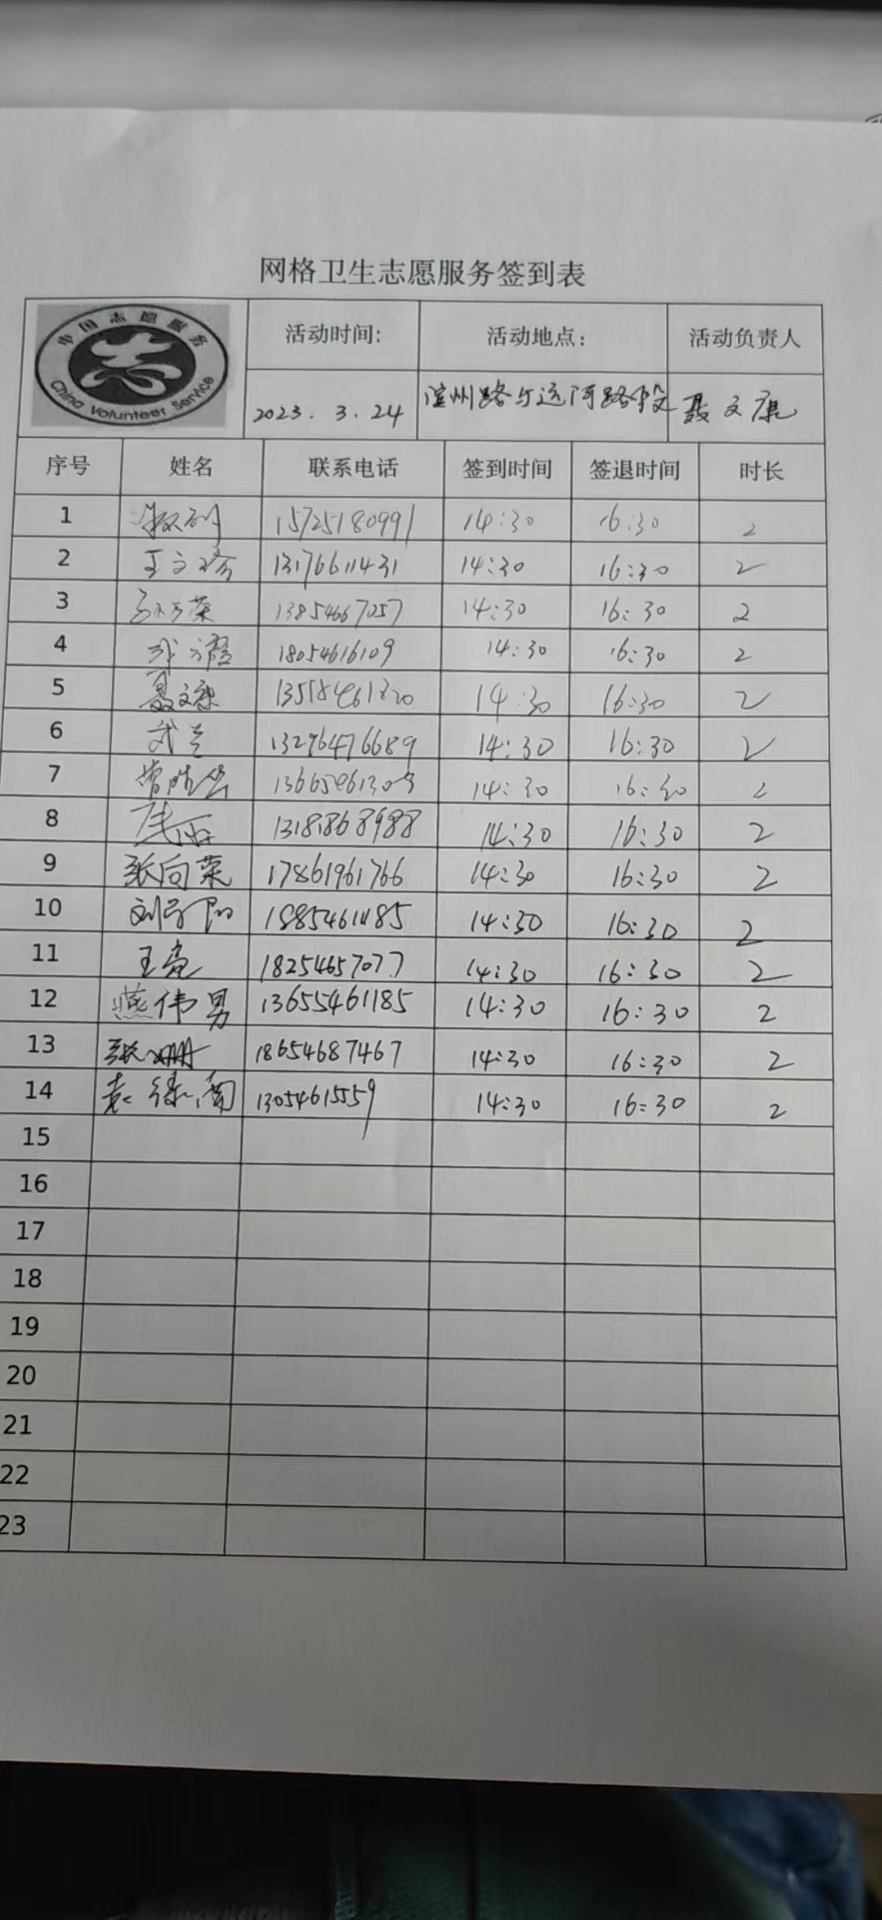 网格卫生志愿服务签到表
中国志愿服务
China Volunteer Service
活动时间: 活动地点: 活动负责人
2023.3.24 滨州路与运河路段 聂文康
序号 姓名 联系电话 签到时间 签退时间 时长
1 15725180991 14:30 16:30 2
2 13176611431 14:30 16:30 2
3 13854667057 14:30 16:30 2
4 18054616109 14:30 16:30 2
5 聂文康 14:30 16:30 2
6 13296476689 14:30 16:30 2
7 14:30 16:30 2
8 13181868988 14:30 16:30 2
9 张向荣 17861961766 14:30 16:30 2
10 14:30 16:30 2
11 王亮 18254657077 14:30 16:30 2
12 燕伟男 13655461185 14:30 16:30 2
13 张姗姗 18654687467 14:30 16:30 2
14 13054615559 14:30 16:30 2
15
16
17
18
19
20
21
22
23